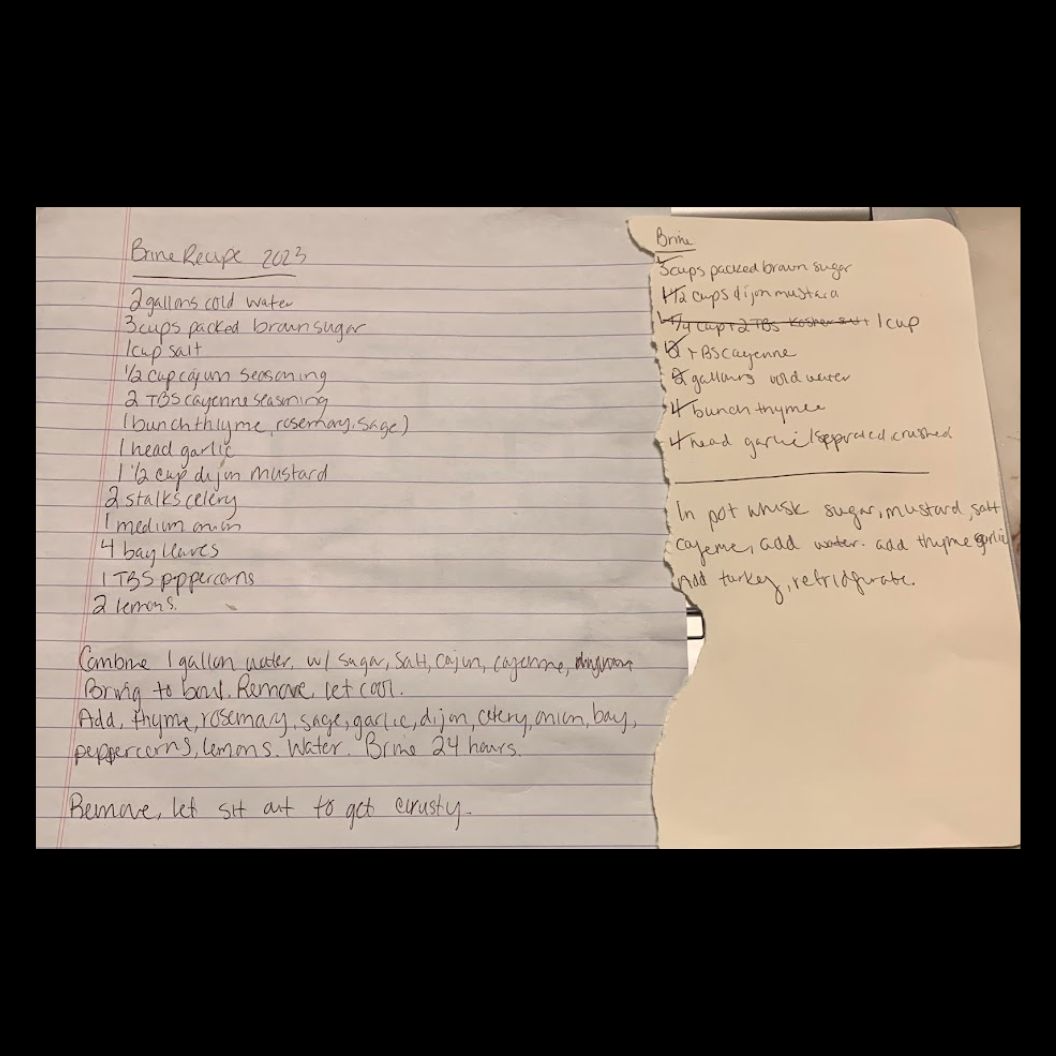 Brine Recipe 2023
2 gallons cold water
3 cups packed brown sugar
1 cup salt
1/2 cup cajun seasoning
2 TBS cayenne seasoning
1 bunch thlyme, rosemary, sage)
1 head garlic
1 1/2 cup dijon mustard
2 stalks celery
1 medium onion
4 bay leaves
1 TBS peppercorns
2 lemons.
Combine 1 gallon water, w/ sugar, salt, cajun, cayenne,
Bring to boil. Remove, let cool.
Add, thyme, rosemary, sage, garlic, dijon, celery, onion, bay,
peppercorns, lemons. Water. Brine 24 hours.
Remove, let sit out to get crusty.
Brine
3 cups packed brown sugar
1 1/2 cups dijon mustard
1/4 cup + 2 TBS Kosher salt 1 cup
TBS cayenne
2 gallons cold water
bunch thyme
head garlic seperated, crushed
In pot whisk sugar, mustard, salt
cayenne, add water. add thyme garlic
Add turkey, refridgurate.